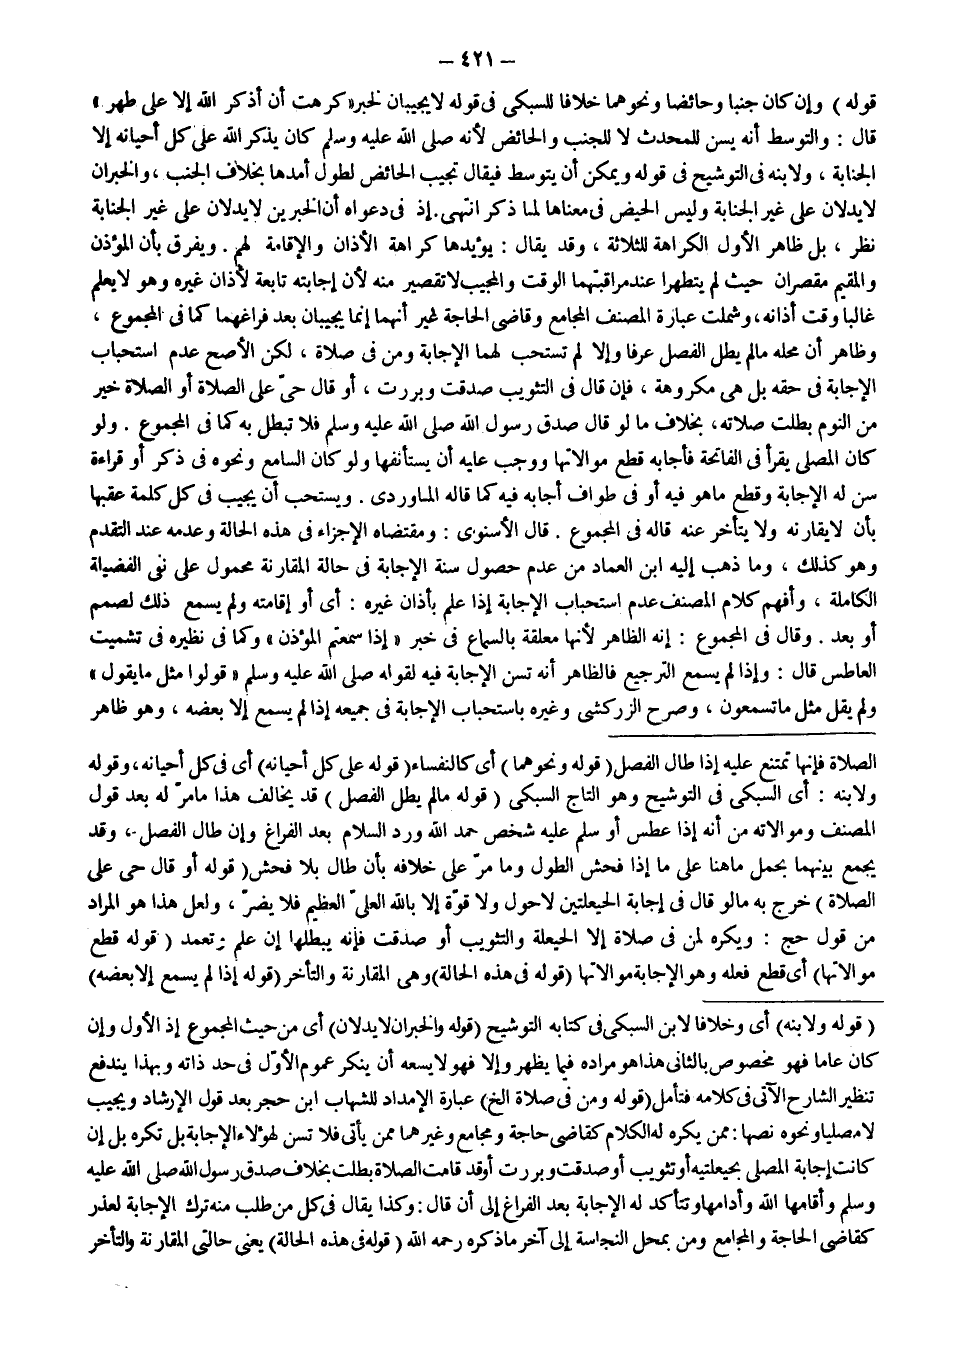 – ٤٢١ –
قوله ) وإن كان جنبا وحائضا ونحوهما خلافا للسبكى فى قوله لا يجيبان لخبر « كرهت أن أذكر الله إلا على طهر »
قال : والتوسط أنه يسن للمحدث لا للجنب والحائض لأنه صلى الله عليه وسلم كان يذكر الله على كل أحيانه إلا
الجنابة ، ولابنه فى التوشيح فى قوله ويمكن أن يتوسط فيقال تجيب الحائض لطول أمدها بخلاف الجنب ، والخبران
لايدلان على غير الجنابة وليس الحيض فى معناها لما ذكر انتهى . إذ فى دعواه أن الخبرين لايدلان على غير الجنابة
نظر ، بل ظاهر الأول الكراهة للثلاثة ، وقد يقال : يؤيدها كراهة الأذان والإقامة لهم . ويفرق بأن المؤذن
والمقيم مقصران حيث لم يتطهرا عند مراقبتهما الوقت والمجيب لاتقصير منه لأن إجابته تابعة لأذان غيره وهو لايعلم
غالبا وقت أذانه ، وشملت عبارة المصنف المجامع وقاضى الحاجة غير أنهما إنما يجيبان بعد فراغهما كما فى المجموع ،
وظاهر أن محله مالم يطل الفصل عرفا وإلا لم تستحب لهما الإجابة ومن فى صلاة ، لكن الأصح عدم استحباب
الإجابة فى حقه بل هى مكروهة ، فإن قال فى التثويب صدقت وبررت ، أو قال حىّ على الصلاة أو الصلاة خير
من النوم بطلت صلاته ، بخلاف ما لو قال صدق رسول الله صلى الله عليه وسلم فلا تبطل به كما فى المجموع . ولو
كان المصلى يقرأ فى الفاتحة فأجابه قطع موالاتها ووجب عليه أن يستأنفها ولو كان السامع ونحوه فى ذكر أو قراءة
سن له الإجابة وقطع ماهو فيه أو فى طواف أجابه فيه كما قاله الماوردى . ويستحب أن يجيب فى كل كلمة عقبها
بأن لايقارنه ولا يتأخر عنه قاله فى المجموع . قال الأسنوى : ومقتضاه الإجزاء فى هذه الحالة وعدمه عند التقدم
وهو كذلك ، وما ذهب إليه ابن العماد من عدم حصول سنة الإجابة فى حالة المقارنة محمول على نفى الفضيلة
الكاملة ، وأفهم كلام المصنف عدم استحباب الإجابة إذا علم بأذان غيره : أى أو إقامته ولم يسمع ذلك لصمم
أو بعد . وقال فى المجموع : إنه الظاهر لأنها معلقة بالسماع فى خبر « إذا سمعتم المؤذن » وكما فى نظيره فى تشميت
العاطس قال : وإذا لم يسمع الترجيع فالظاهر أنه تسن الإجابة فيه لقوله صلى الله عليه وسلم « قولوا مثل مايقول »
ولم يقل مثل ماتسمعون ، وصرح الزركشى وغيره باستحباب الإجابة فى جميعه إذا لم يسمع إلا بعضه ، وهو ظاهر
الصلاة فإنها تمتنع عليه إذا طال الفصل ( قوله ونحوهما ) أى كالنفساء ( قوله على كل أحيانه ) أى فى كل أحيانه ، وقوله
ولابنه : أى السبكى فى التوشيح وهو التاج السبكى ( قوله مالم يطل الفصل ) قد يخالف هذا مامرّ له بعد قول
المصنف وموالاته من أنه إذا عطس أو سلم عليه شخص حمد الله ورد السلام بعد الفراغ وإن طال الفصل ، وقد
يجمع بينهما بحمل ماهنا على ما إذا فحش الطول وما مرّ على خلافه بأن طال بلا فحش ( قوله أو قال حى على
الصلاة ) خرج به مالو قال فى إجابة الحيعلتين لاحول ولا قوّة إلا بالله العلىّ العظيم فلا يضرّ ، ولعل هذا هو المراد
من قول حج : ويكره لمن فى صلاة إلا الحيعلة والتثويب أو صدقت فإنه يبطلها إن علم وتعمد ( قوله قطع
موالاتها ) أى قطع فعله وهو الإجابة موالاتها ( قوله فى هذه الحالة ) وهى المقارنة والتأخر ( قوله إذا لم يسمع إلا بعضه )
( قوله ولابنه ) أى وخلافا لابن السبكى فى كتابه التوشيح ( قوله والخبران لايدلان ) أى من حيث المجموع إذ الأول وإن
كان عاما فهو مخصوص بالثانى هذا هو مراده فيما يظهر وإلا فهو لايسعه أن ينكر عموم الأوّل فى حد ذاته وبهذا يندفع
تنظير الشارح الآتى فى كلامه فتأمل ( قوله ومن فى صلاة الخ ) عبارة الإمداد للشهاب ابن حجر بعد قول الإرشاد ويجيب
لامصليا ونحوه نصها : ممن يكره له الكلام كقاضى حاجة ومجامع وغيرهما ممن يأتى فلا تسن لهؤلاء الإجابة بل تكره بل إن
كانت إجابة المصلى بحيعلتيه أو تثويب أو صدقت وبررت أو قد قامت الصلاة بطلت بخلاف صدق رسول الله صلى الله عليه
وسلم وأقامها الله وأدامها وتتأكد له الإجابة بعد الفراغ إلى أن قال : وكذا يقال فى كل من طلب منه ترك الإجابة لعذر
كقاضى الحاجة والمجامع ومن بمحل النجاسة إلى آخر ماذكره رحمه الله ( قوله فى هذه الحالة ) يعنى حالتى المقارنة والتأخر